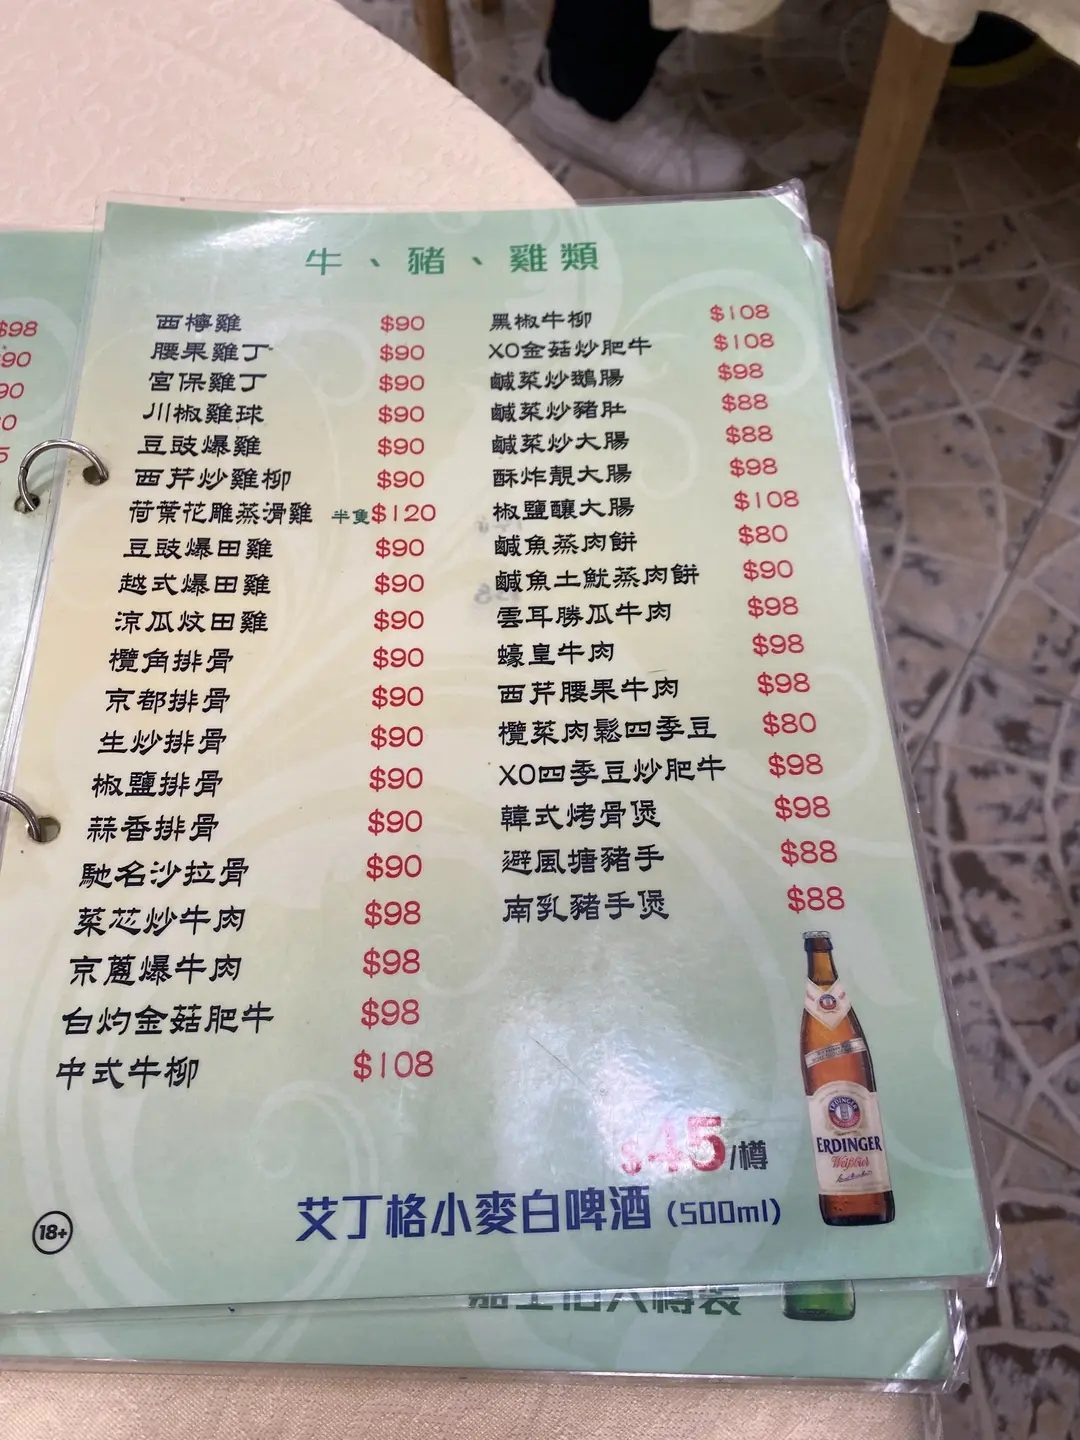 牛、豬、雞類
西檸雞 $90
腰果雞丁 $90
宮保雞丁 $90
川椒雞球 $90
豆豉爆雞 $90
西芹炒雞柳 $90
荷葉花雕蒸滑雞 半隻$120
豆豉爆田雞 $90
越式爆田雞 $90
涼瓜炆田雞 $90
欖角排骨 $90
京都排骨 $90
生炒排骨 $90
椒鹽排骨 $90
蒜香排骨 $90
馳名沙拉骨 $90
菜芯炒牛肉 $98
京蔥爆牛肉 $98
白灼金菇肥牛 $98
中式牛柳 $108
黑椒牛柳 $108
XO金菇炒肥牛 $108
鹹菜炒鵝腸 $98
鹹菜炒豬肚 $88
鹹菜炒大腸 $88
酥炸靚大腸 $98
椒鹽釀大腸 $108
鹹魚蒸肉餅 $80
鹹魚土魷蒸肉餅 $90
雲耳勝瓜牛肉 $98
蠔皇牛肉 $98
西芹腰果牛肉 $98
欖菜肉鬆四季豆 $80
XO四季豆炒肥牛 $98
韓式烤骨煲 $98
避風塘豬手 $88
南乳豬手煲 $88
$45/樽
艾丁格小麥白啤酒 (500ml)
18+
ERDINGER
Weißbier
$98